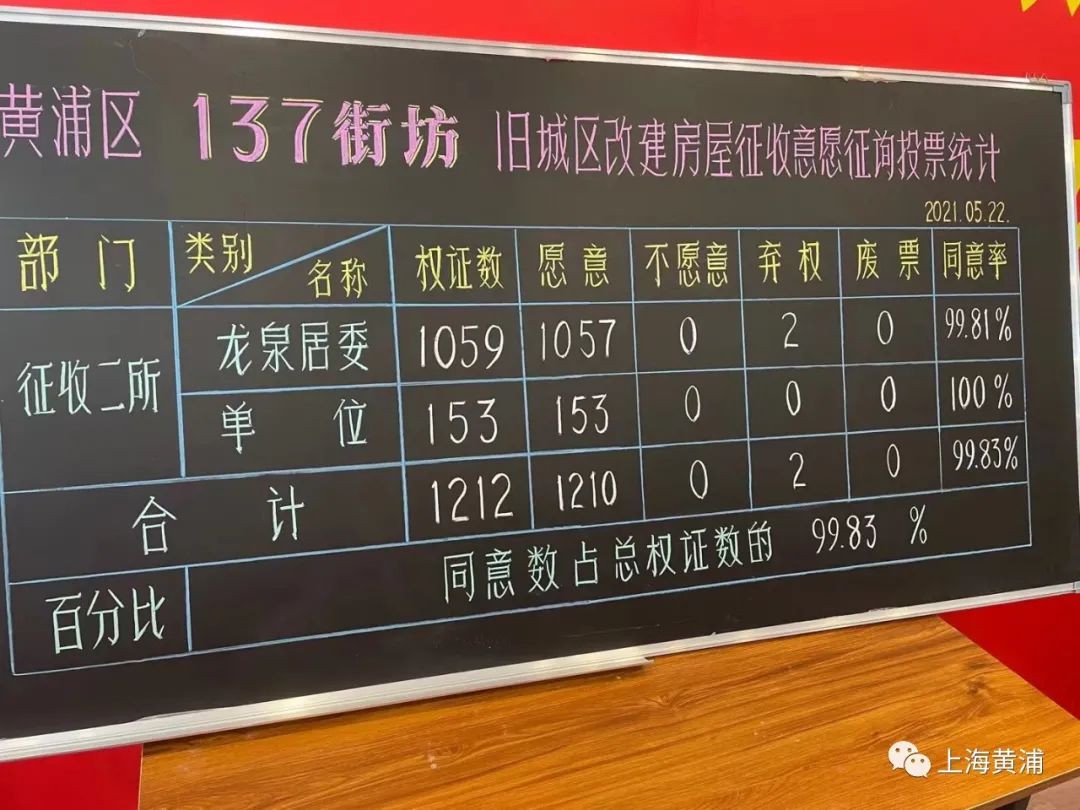 黄浦区 137街坊 旧城区改建房屋征收意愿征询投票统计
2021.05.22.
部门 类别 名称 权证数 愿意 不愿意 弃权 废票 同意率
征收二所 龙泉居委 1059 1057 0 2 0 99.81%
单位 153 153 0 0 0 100%
合计 1212 1210 0 2 0 99.83%
百分比 同意数占总权证数的 99.83 %
上海黄浦